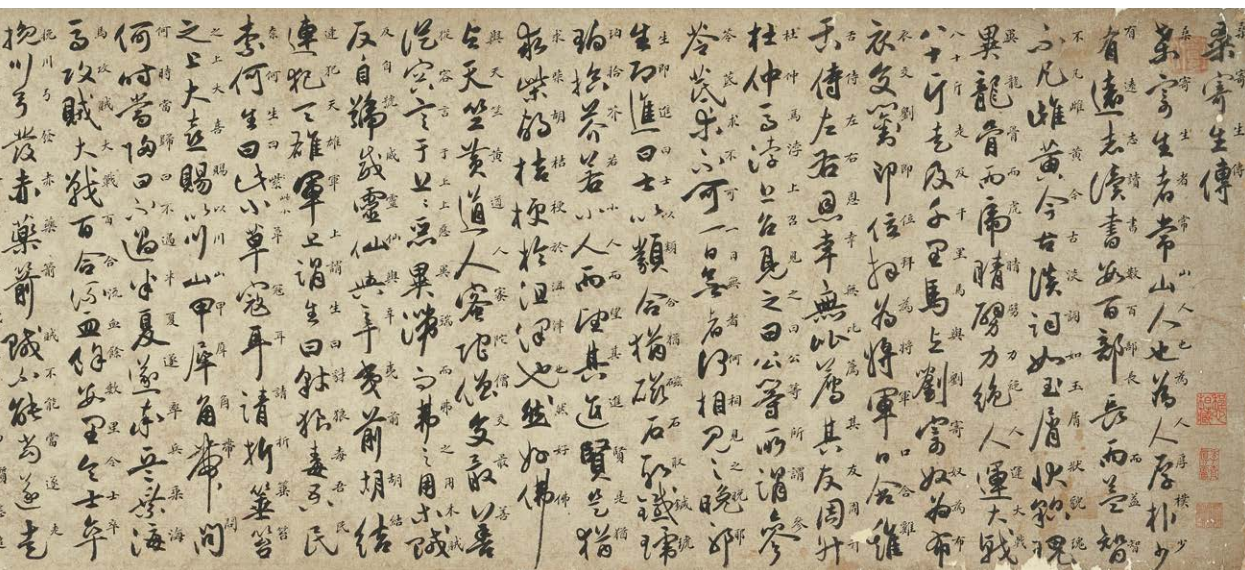 桑寄生傳
桑寄生者常山人也為人厚朴少
有遠志讀書數百部長而益智
不凡雌黃今古談詞如玉屑狀貌瑰
異龍骨而虎睛膂力絕人運大戟
八十斤走及千里馬與劉寄奴為布
衣交劉即位拜為將軍日含雞
舌侍左右恩幸無比薦其友周升
杜仲馬浡上召見之曰公等所謂參
苓芪朮不可一日無者何相見之晚耶
生即進曰士以類合猶磁石取鍼琥
珀拾芥若小人而望其進賢是猶
求柴胡桔梗於沮澤也然好佛
與天竺黃道人蜜陀僧交最善
從容言于上上惡其異端而弗之用木賊
反自號威靈仙與辛夷前胡結
連犯天雄軍上謂生曰豺狼毒吾民
奈何生曰此小草寇耳請折箠笞
之上大喜賜以川山甲犀角帶問
何時當歸曰不過半夏遂率兵乘海
馬攻賊大戰百合流血餘數里令士卒
挽川弓發赤藥箭賊不能當遂走